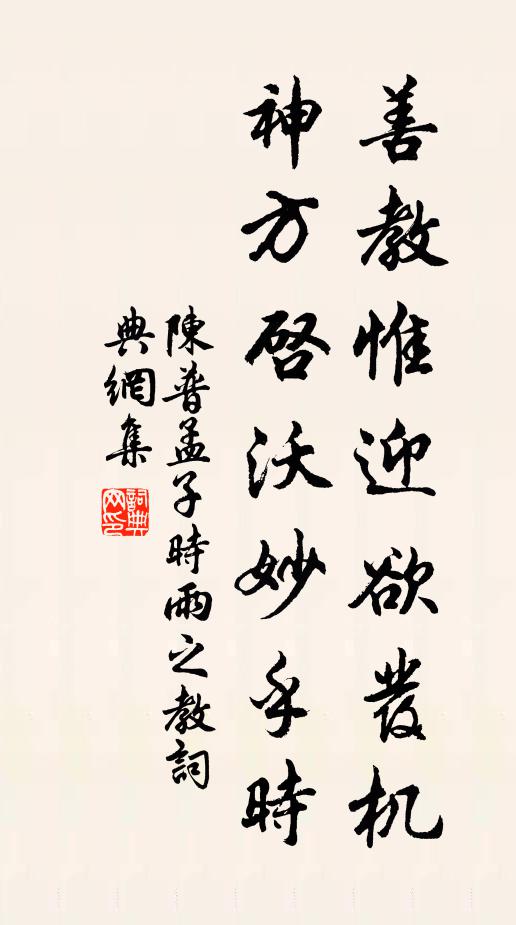 善教惟迎欲發机
神方啓沃妙乎時
陳普孟子時雨之教詞
典網集
詞典網印